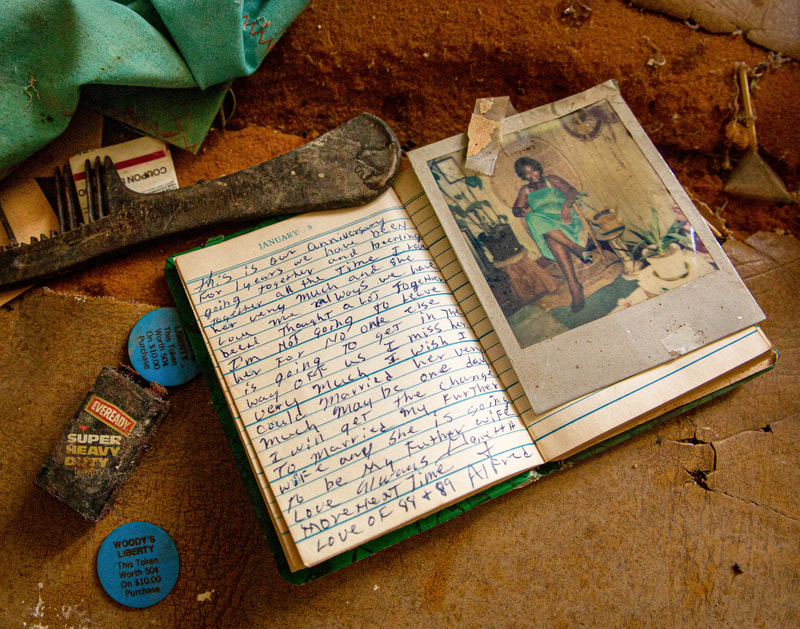 COUPON
JANUARY 9
This is our Anniversary
For years we have been
going Together and
Together all the Time I Love
her very much and she
Love me Always we have
been Thought a Lot Together
I'm Not going to Leave
her For No one else
is going to get in The
way OFF us I miss her
very much I wish I
could Married her very
much may be one day
I will get the change
To Married my Further
wife and she is going
to be my Further wife
Love Always I Love
More Next Time
Love OF + 89 Alfred
LIBERTY
This Token
Worth 50¢
On $10.00
Purchase
EVEREADY
SUPER
HEAVY
DUTY
WOODY'S
LIBERTY
This Token
Worth 50¢
On $10.00
Purchase